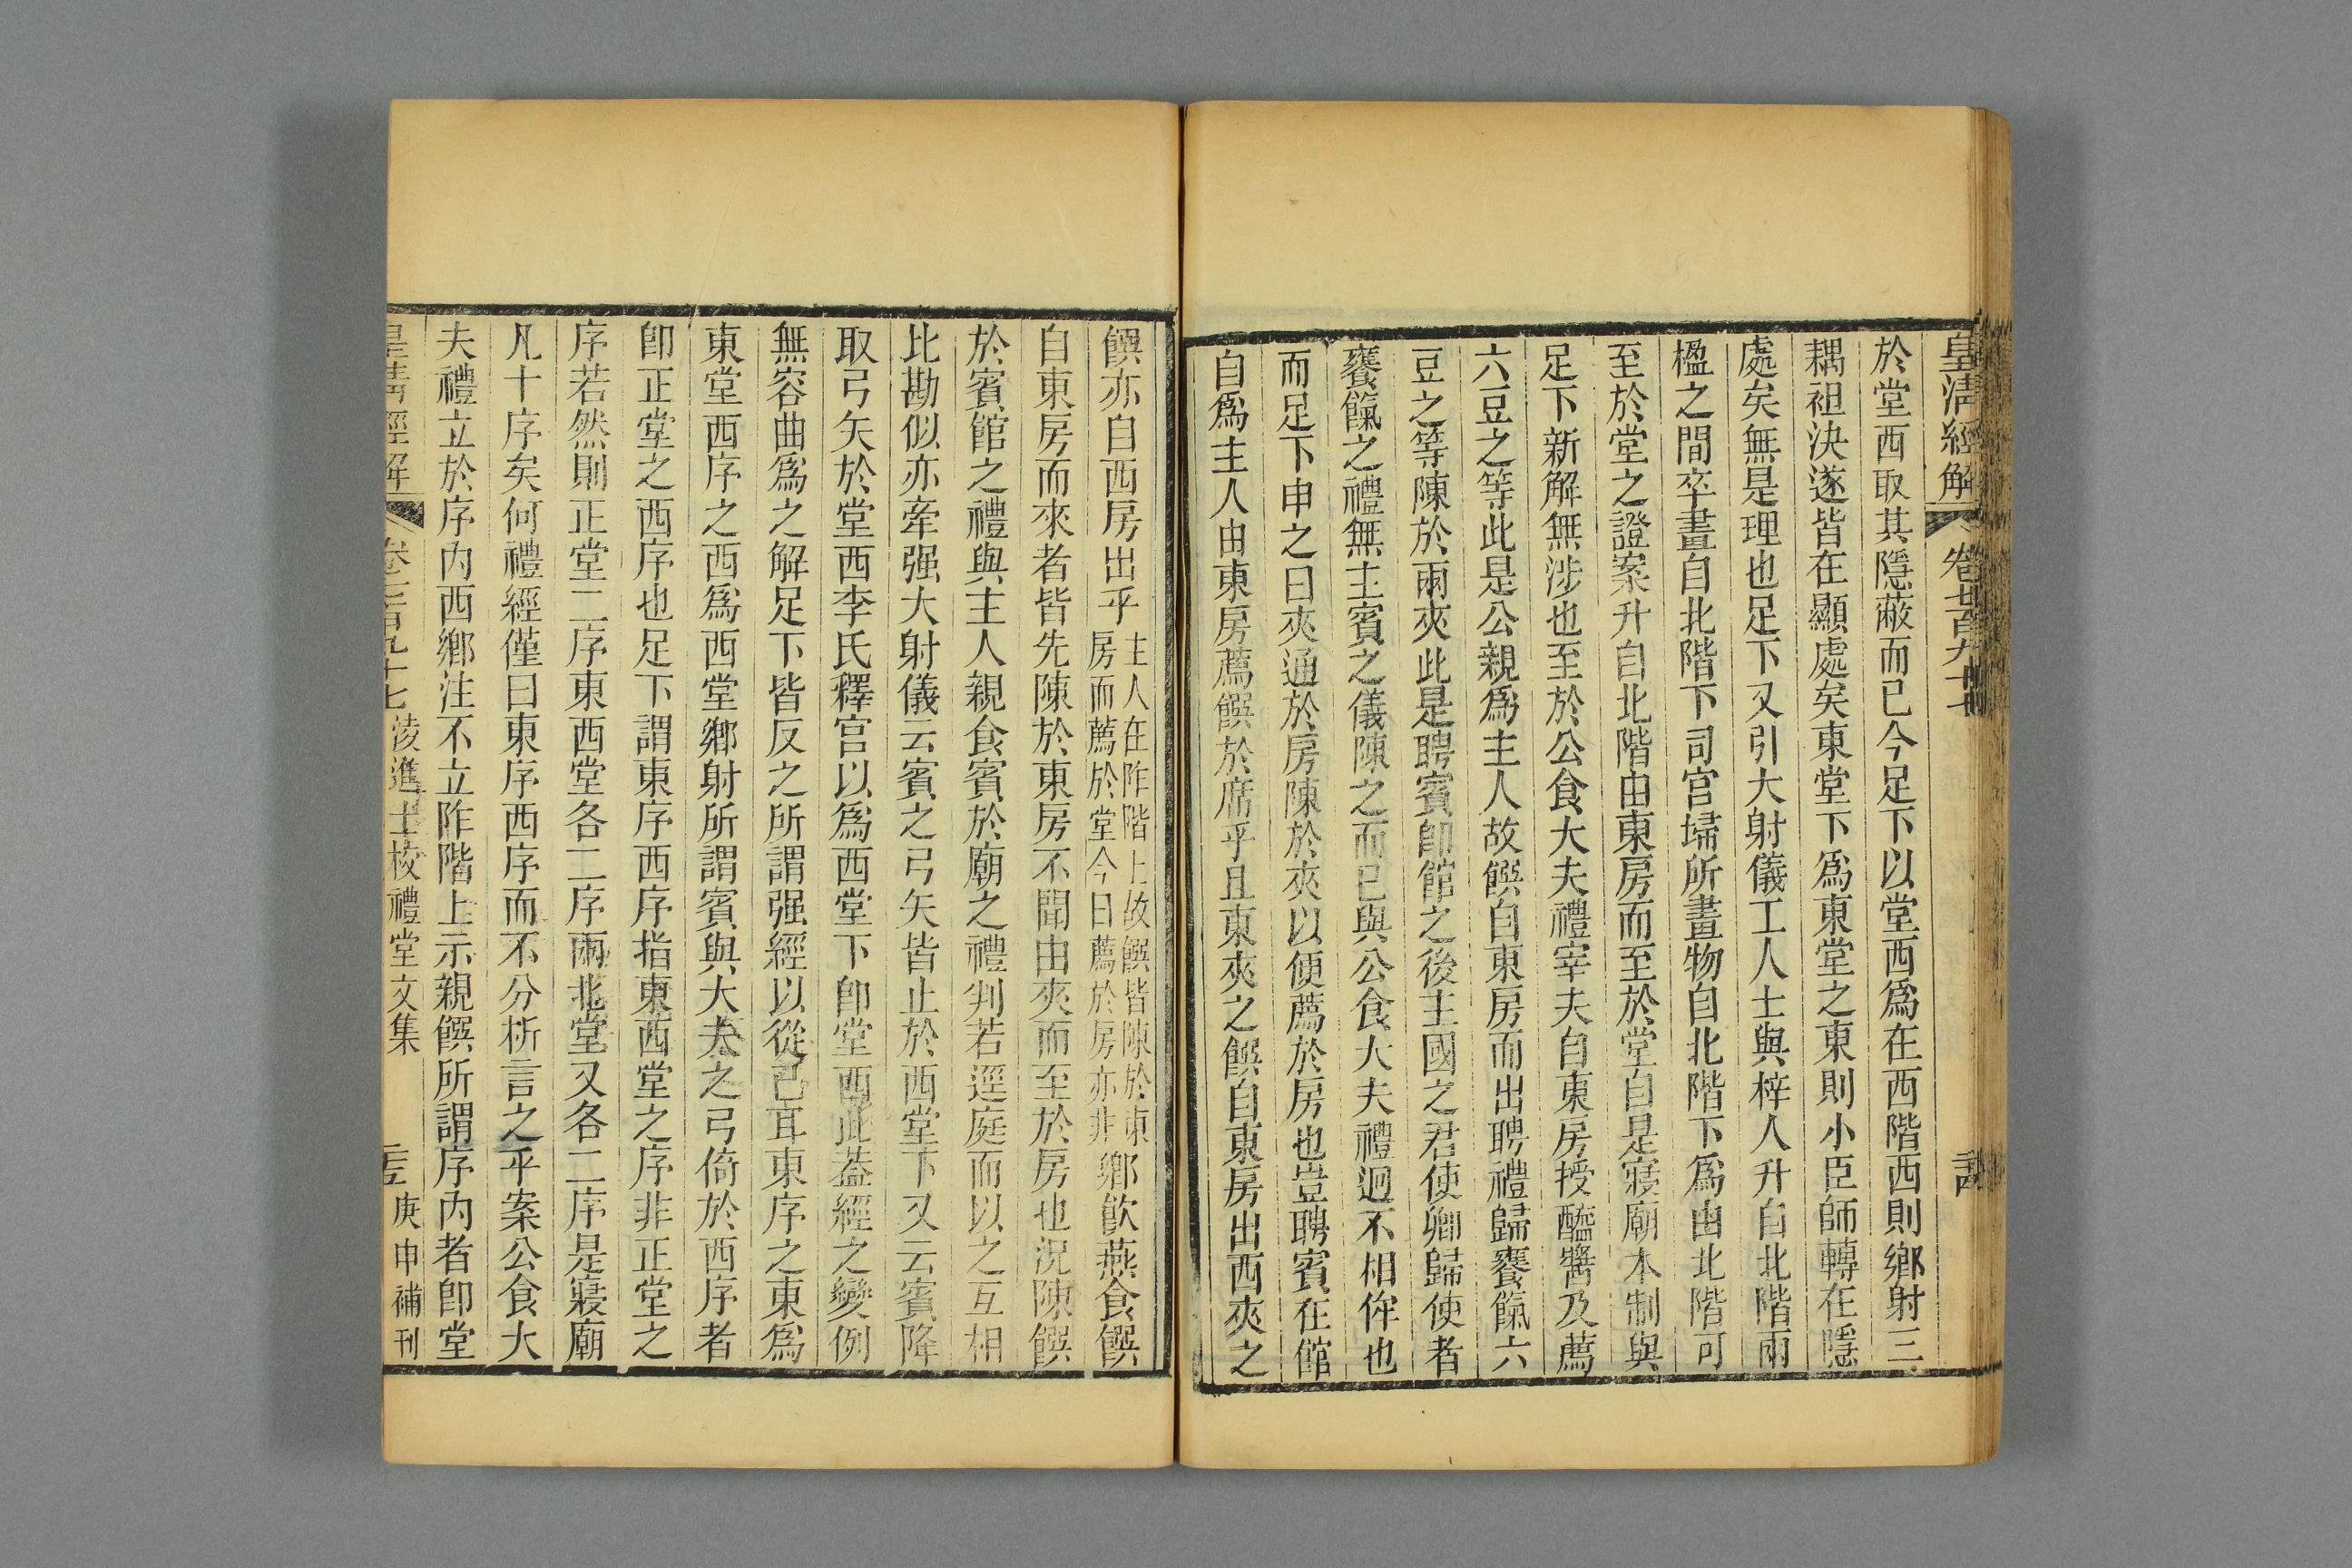 皇清經解 卷七百九十七
於堂西取其隱蔽而已今足下以堂西爲在西階西則鄉射三
耦袒決遂皆在顯處矣東堂下爲東堂之東則小臣師轉在隱
處矣無是理也足下又引大射儀工人士與梓人升自北階兩
楹之間卒畫自北階下司宮埽所畫物自北階下爲由北階可
至於堂之證案升自北階由東房而至於堂自是寢廟本制與
足下新解無涉也至於公食大夫禮宰夫自東房授醢醬及薦
六豆之等此是公親爲主人故饌自東房而出聘禮歸饔餼六
豆之等陳於兩夾此是聘賓卽館之後主國之君使卿歸使者
饔餼之禮無主賓之儀陳之而已與公食大夫禮迥不相侔也
而足下申之曰夾通於房陳於夾以便薦於房也豈聘賓在館
自爲主人由東房薦饌於席乎且東夾之饌自東房出西夾之
饌亦自西房出乎主人在阼階上故饌皆陳於東房而薦於堂今日薦於房亦非鄉飮燕食饌
自東房而來者皆先陳於東房不聞由夾而至於房也況陳饌
於賓館之禮與主人親食賓於廟之禮判若逕庭而以之互相
比勘似亦牽强大射儀云賓之弓矢皆止於西堂下又云賓降
取弓矢於堂西李氏釋宮以爲西堂下卽堂西此葢經之變例
無容曲爲之解足下皆反之所謂强經以從己耳東序之東爲
東堂西序之西爲西堂鄉射所謂賓與大夫之弓倚於西序者
卽正堂之西序也足下謂東序西序指東西堂之序非正堂之
序若然則正堂二序東西堂各二序兩北堂又各二序是寢廟
凡十序矣何禮經僅曰東序西序而不分析言之乎案公食大
夫禮立於序內西鄉注不立阼階上示親饌所謂序內者卽堂
皇淸經解 卷七百九十七 淩進士校禮堂文集 庚申補刊